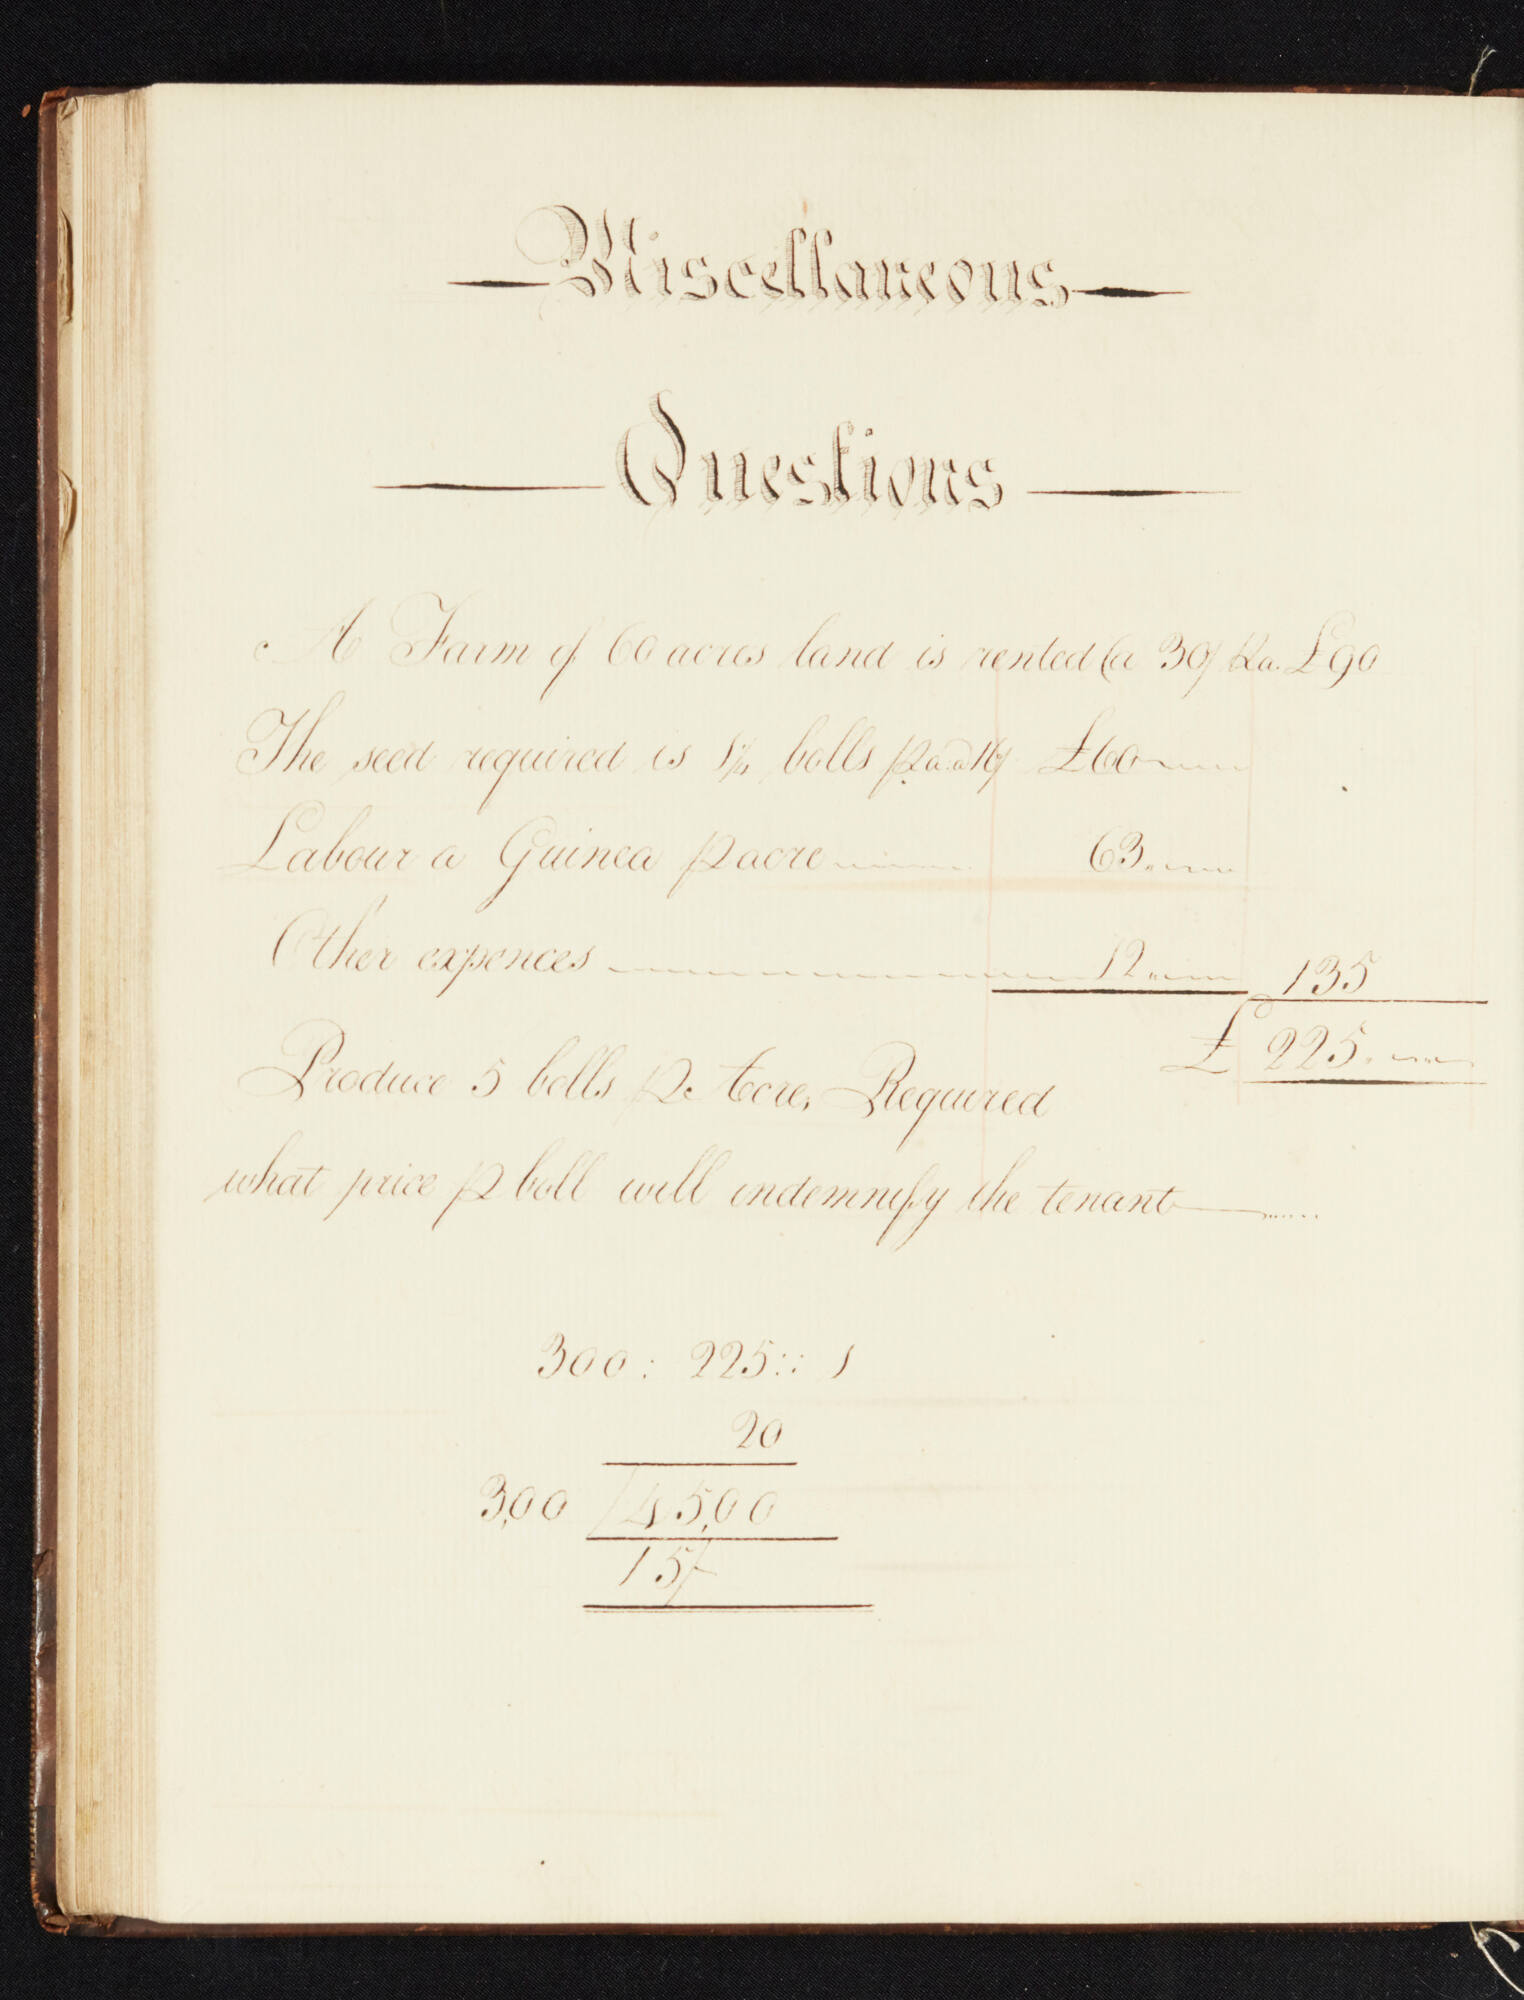 Miscellaneous
Questions
A Farm of 60 acres land is rented @ 30/ ⅌ a. £90
The seed required is 1¼ bolls ⅌ a. @ 16/ £60
Labour a Guinea ⅌ acre 63
Other expences 12 135
£ 225
Produce 5 bolls ⅌ Acre, Required
what price ⅌ boll will indemnify the tenant
300 : 225 :: 1
20
3,00 / 45,00
15/